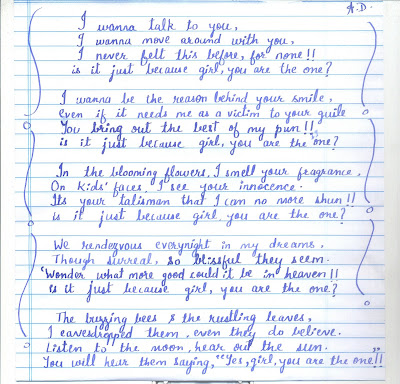 A.D.
I wanna talk to you,
I wanna move around with you,
I never felt this before, for none!!
is it just because girl, you are the one?
I wanna be the reason behind your smile,
Even if it needs me as a victim to your guile
You bring out the best of my pun!!
is it just because girl, you are the "one"?
In the blooming flowers, I smell your fragrance,
On kids' faces, I see your innocence.
Its your talisman that I can no more shun!!
is it just because girl, you are the one?
We rendezvous everynight in my dreams,
Though surreal, so blissful they seem.
'Wonder what more good could it be in heaven!!
Is it just because girl, you are the one?
The buzzing bees & the rustling leaves,
I eavesdropped them, even they do believe.
Listen to the moon, hear out the sun.
You will hear them saying, "Yes, girl, you are the one!!"